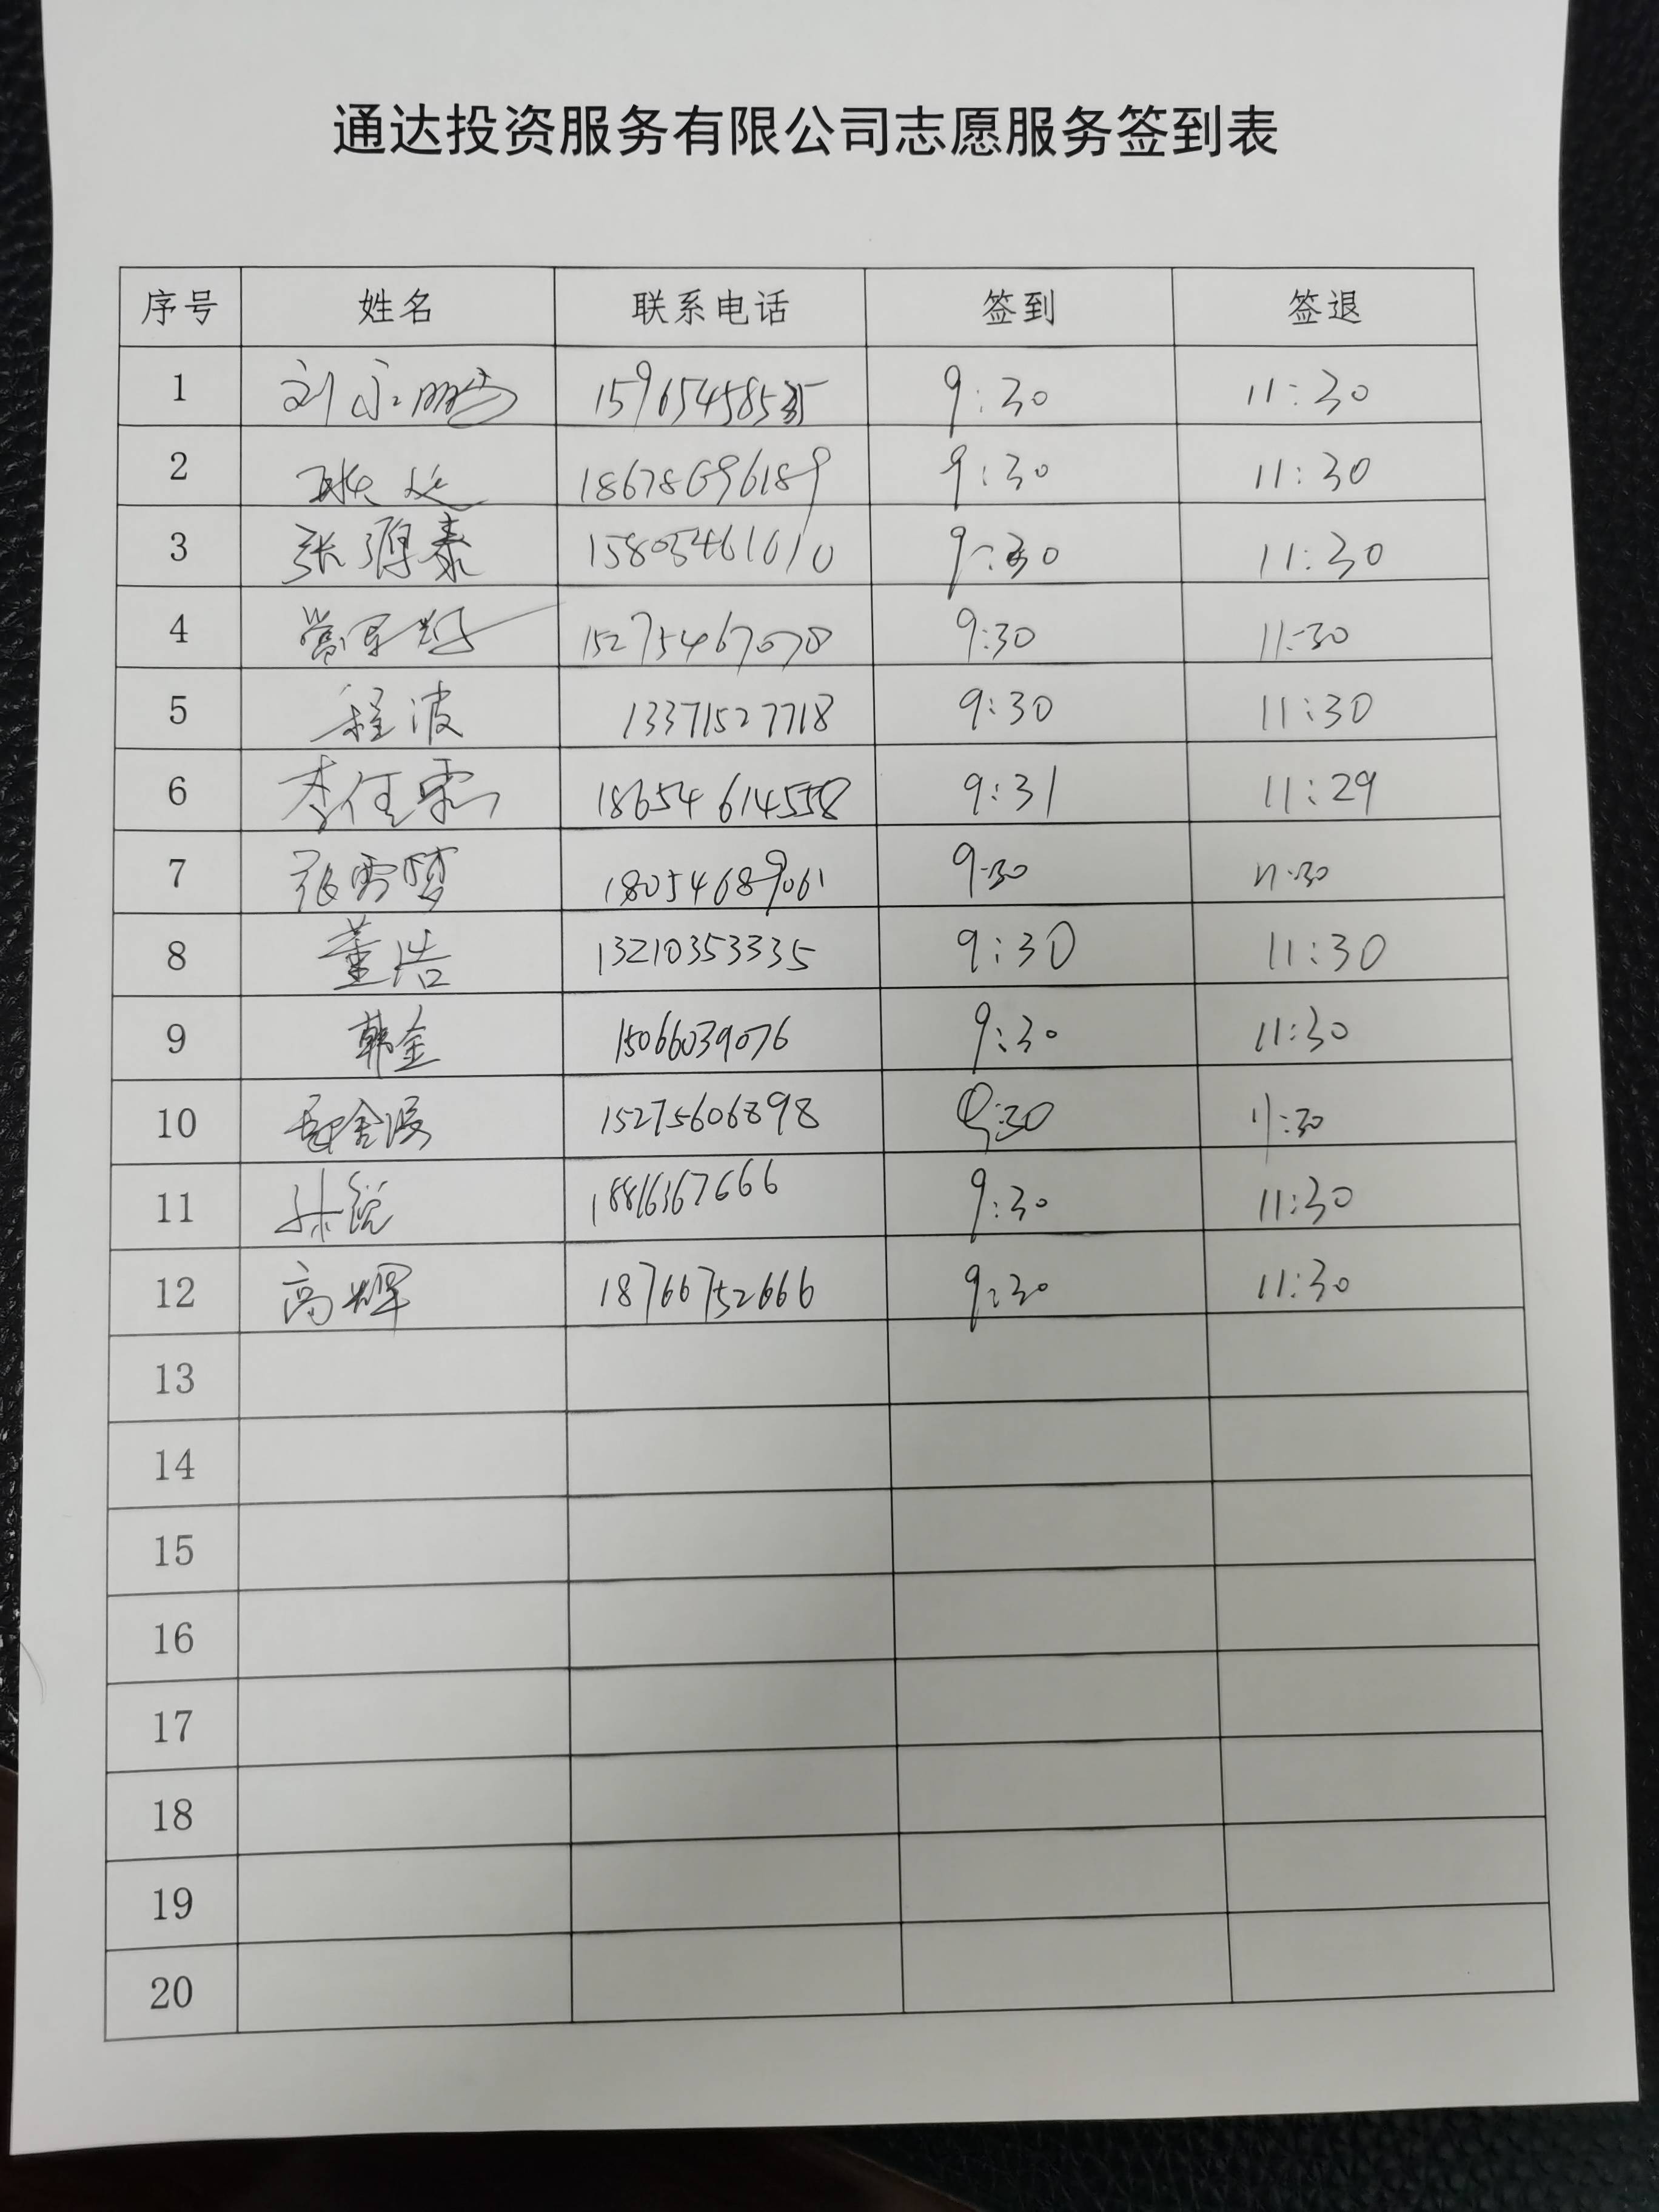 通达投资服务有限公司志愿服务签到表
序号 姓名 联系电话 签到 签退
1 刘永鹏 9:30 11:30
2 18678696189 9:30 11:30
3 张源泰 15805461610 9:30 11:30
4 15275467078 9:30 11:30
5 程波 13371527718 9:30 11:30
6 18654614558 9:31 11:29
7 张雪梦 18054689061 9:30 11:30
8 董浩 13210353335 9:30 11:30
9 韩金 15066039076 9:30 11:30
10 15275606898 9:30 11:30
11 孙悦 18816367666 9:30 11:30
12 高辉 18766752666 9:30 11:30
13
14
15
16
17
18
19
20